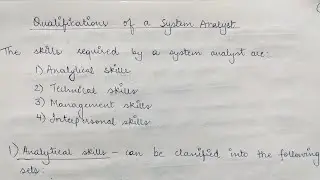 Qualifications of a System Analyst
The skills required by a system analyst are:
1) Analytical skills
2) Technical skills
3) Management skills
4) Interpersonal skills
1) Analytical skills - can be classified into the following
sets: